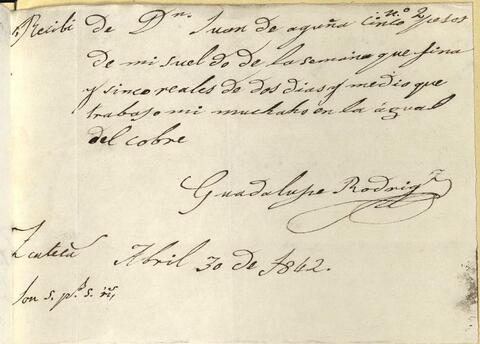 n.º 2
Recibi de Dn. Juan de acuña cinco pesos
de mi sueldo de la semana que fina
y sinco reales de dos dias y medio que
trabajo mi muchaho en la agual
del cobre
Guadalupe Rodrigz
Abril 30 de 1842.
Son 5. ps. 5. rs,